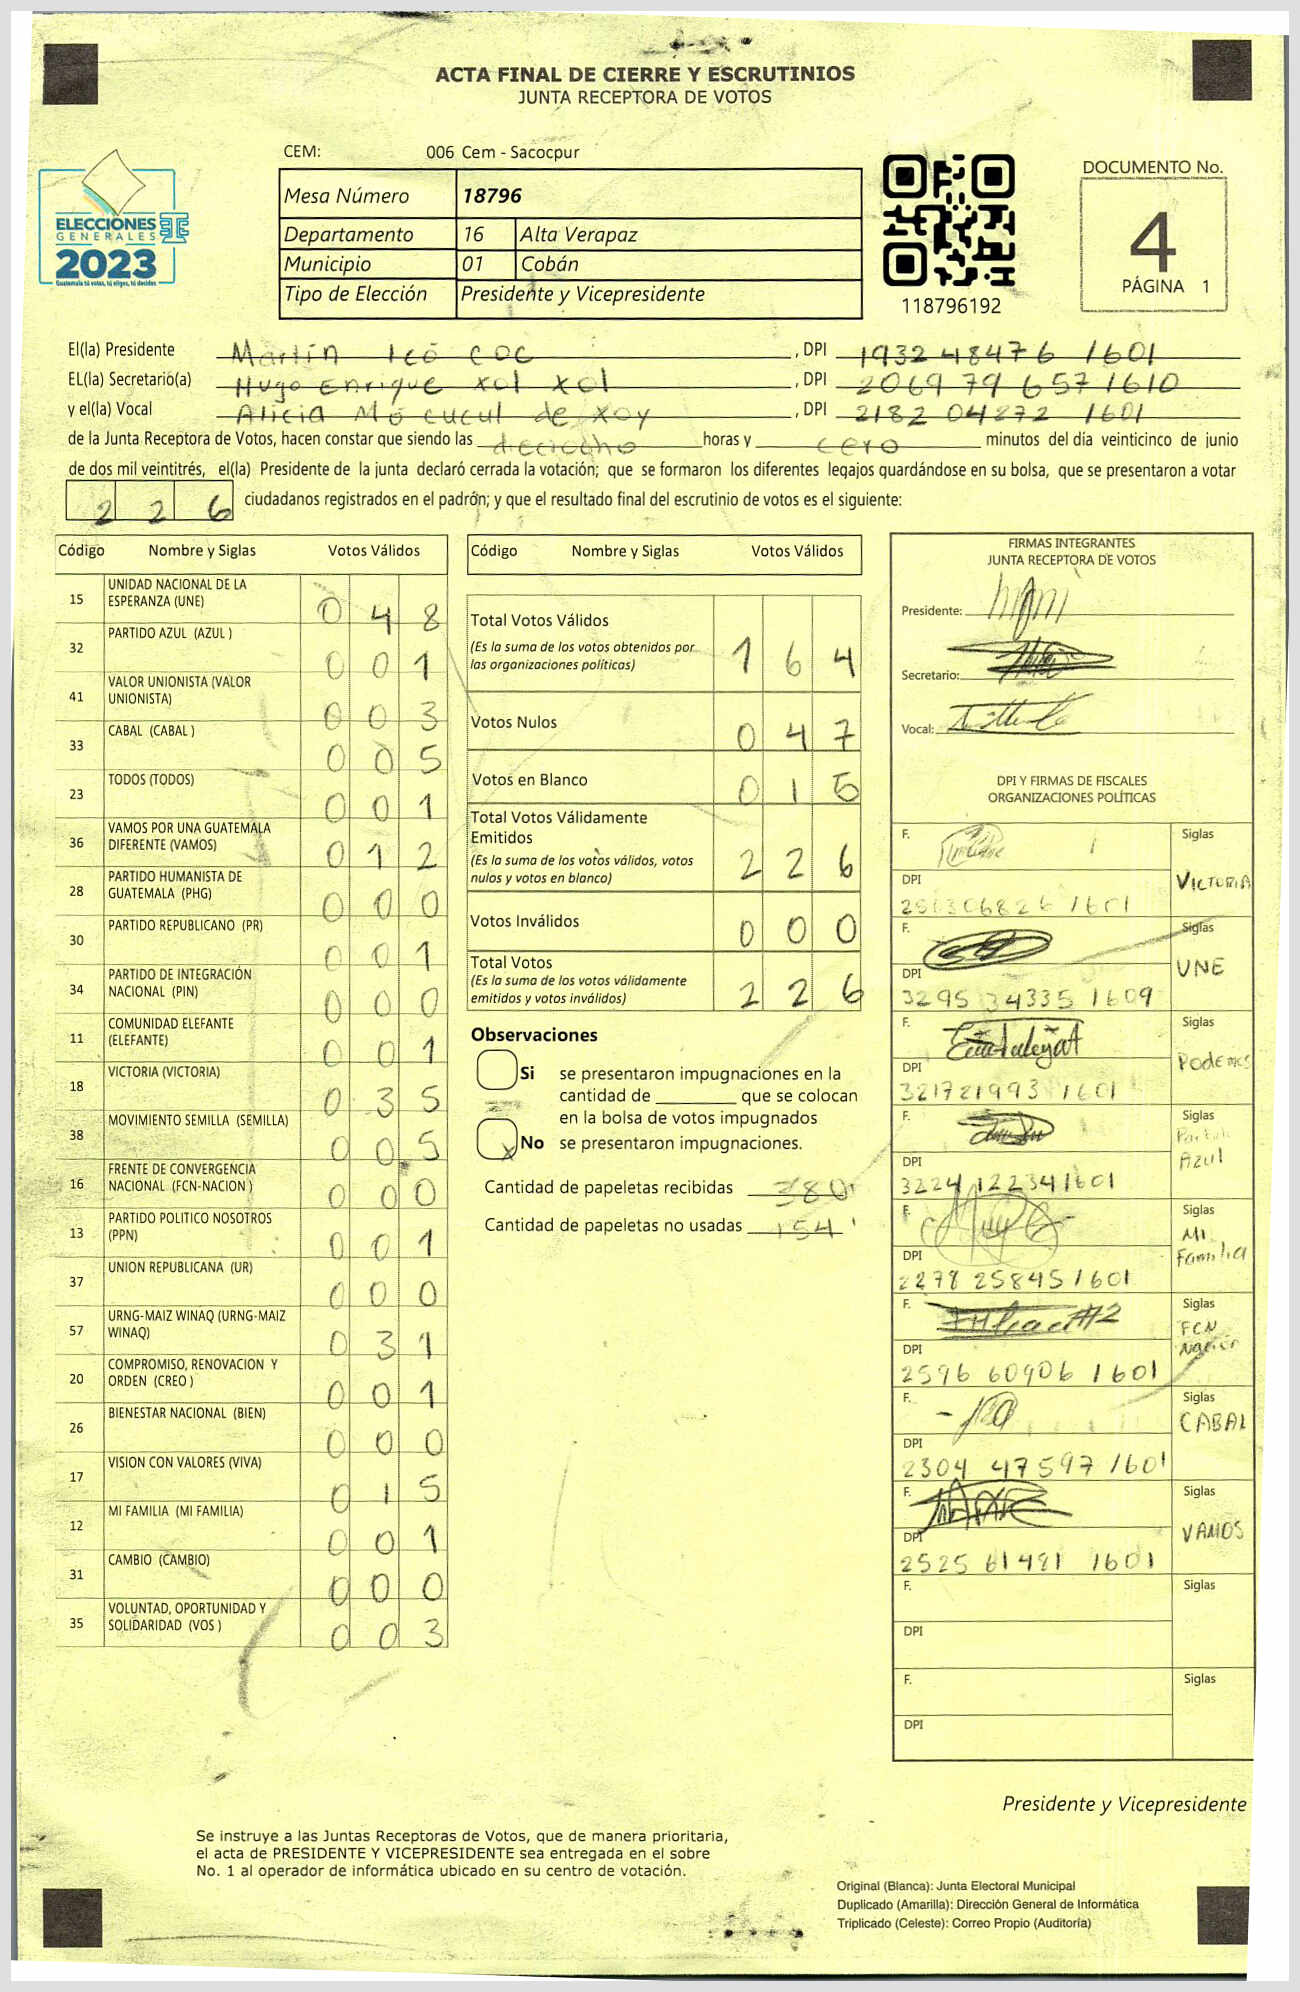 ACTA FINAL DE CIERRE Y ESCRUTINIOS
JUNTA RECEPTORA DE VOTOS
CEM: 006 Cem - Sacocpur
ELECCIONES
GENERALES
2023
Guatemala tú votas, tú eliges, tú decides
Mesa Número 18796
Departamento 16 Alta Verapaz
Municipio 01 Cobán
Tipo de Elección Presidente y Vicepresidente
118796192
DOCUMENTO No.
4
PÁGINA 1
El(la) Presidente Martín Icó coc, DPI 1932 48476 1601
EL(la) Secretario(a) Hugo Enrique xol xol, DPI 2069 79 657 1610
y el(la) Vocal Alicia Mó cucul de xoy, DPI 2182 04272 1601
de la Junta Receptora de Votos, hacen constar que siendo las deciocho horas y cero minutos del día veinticinco de junio
de dos mil veintitrés, el(la) Presidente de la junta declaró cerrada la votación; que se formaron los diferentes legajos quardándose en su bolsa, que se presentaron a votar
2 2 6 ciudadanos registrados en el padrón; y que el resultado final del escrutinio de votos es el siguiente:
Código Nombre y Siglas Votos Válidos
15 UNIDAD NACIONAL DE LA ESPERANZA (UNE) 0 4 8
32 PARTIDO AZUL (AZUL ) 0 0 1
41 VALOR UNIONISTA (VALOR UNIONISTA) 0 0 3
33 CABAL (CABAL ) 0 0 5
23 TODOS (TODOS) 0 0 1
36 VAMOS POR UNA GUATEMALA DIFERENTE (VAMOS) 0 1 2
28 PARTIDO HUMANISTA DE GUATEMALA (PHG) 0 0 0
30 PARTIDO REPUBLICANO (PR) 0 0 1
34 PARTIDO DE INTEGRACIÓN NACIONAL (PIN) 0 0 0
11 COMUNIDAD ELEFANTE (ELEFANTE) 0 0 1
18 VICTORIA (VICTORIA) 0 3 5
38 MOVIMIENTO SEMILLA (SEMILLA) 0 0 5
16 FRENTE DE CONVERGENCIA NACIONAL (FCN-NACION ) 0 0 0
13 PARTIDO POLITICO NOSOTROS (PPN) 0 0 1
37 UNION REPUBLICANA (UR) 0 0 0
57 URNG-MAIZ WINAQ (URNG-MAIZ WINAQ) 0 3 1
20 COMPROMISO, RENOVACION Y ORDEN (CREO ) 0 0 1
26 BIENESTAR NACIONAL (BIEN) 0 0 0
17 VISION CON VALORES (VIVA) 0 1 5
12 MI FAMILIA (MI FAMILIA) 0 0 1
31 CAMBIO (CAMBIO) 0 0 0
35 VOLUNTAD, OPORTUNIDAD Y SOLIDARIDAD (VOS ) 0 0 3
Código Nombre y Siglas Votos Válidos
Total Votos Válidos
(Es la suma de los votos obtenidos por las organizaciones políticas) 1 6 4
Votos Nulos 0 4 7
Votos en Blanco 0 1 5
Total Votos Válidamente Emitidos
(Es la suma de los votos válidos, votos nulos y votos en blanco) 2 2 6
Votos Inválidos 0 0 0
Total Votos
(Es la suma de los votos válidamente emitidos y votos inválidos) 2 2 6
Observaciones
Si se presentaron impugnaciones en la
cantidad de ________ que se colocan
en la bolsa de votos impugnados
x No se presentaron impugnaciones.
Cantidad de papeletas recibidas 380
Cantidad de papeletas no usadas 154
FIRMAS INTEGRANTES
JUNTA RECEPTORA DE VOTOS
Presidente:
Secretario:
Vocal:
DPI Y FIRMAS DE FISCALES
ORGANIZACIONES POLÍTICAS
F. Siglas VICTORIA
DPI
F. Siglas UNE
DPI 3295 34335 1609
F. Siglas Podemos
DPI 321721993 1601
F. Siglas Partido Azul
DPI 3224 12234 1601
F. Siglas Mi Familia
DPI 2278 25845 1601
F. Siglas FCN Nación
DPI 2596 60906 1601
F. Siglas CABAL
DPI 2304 47597 1601
F. Siglas VAMOS
DPI 2525 61481 1601
F. Siglas
DPI
F. Siglas
DPI
Presidente y Vicepresidente
Se instruye a las Juntas Receptoras de Votos, que de manera prioritaria,
el acta de PRESIDENTE Y VICEPRESIDENTE sea entregada en el sobre
No. 1 al operador de informática ubicado en su centro de votación.
Original (Blanca): Junta Electoral Municipal
Duplicado (Amarilla): Dirección General de Informática
Triplicado (Celeste): Correo Propio (Auditoría)